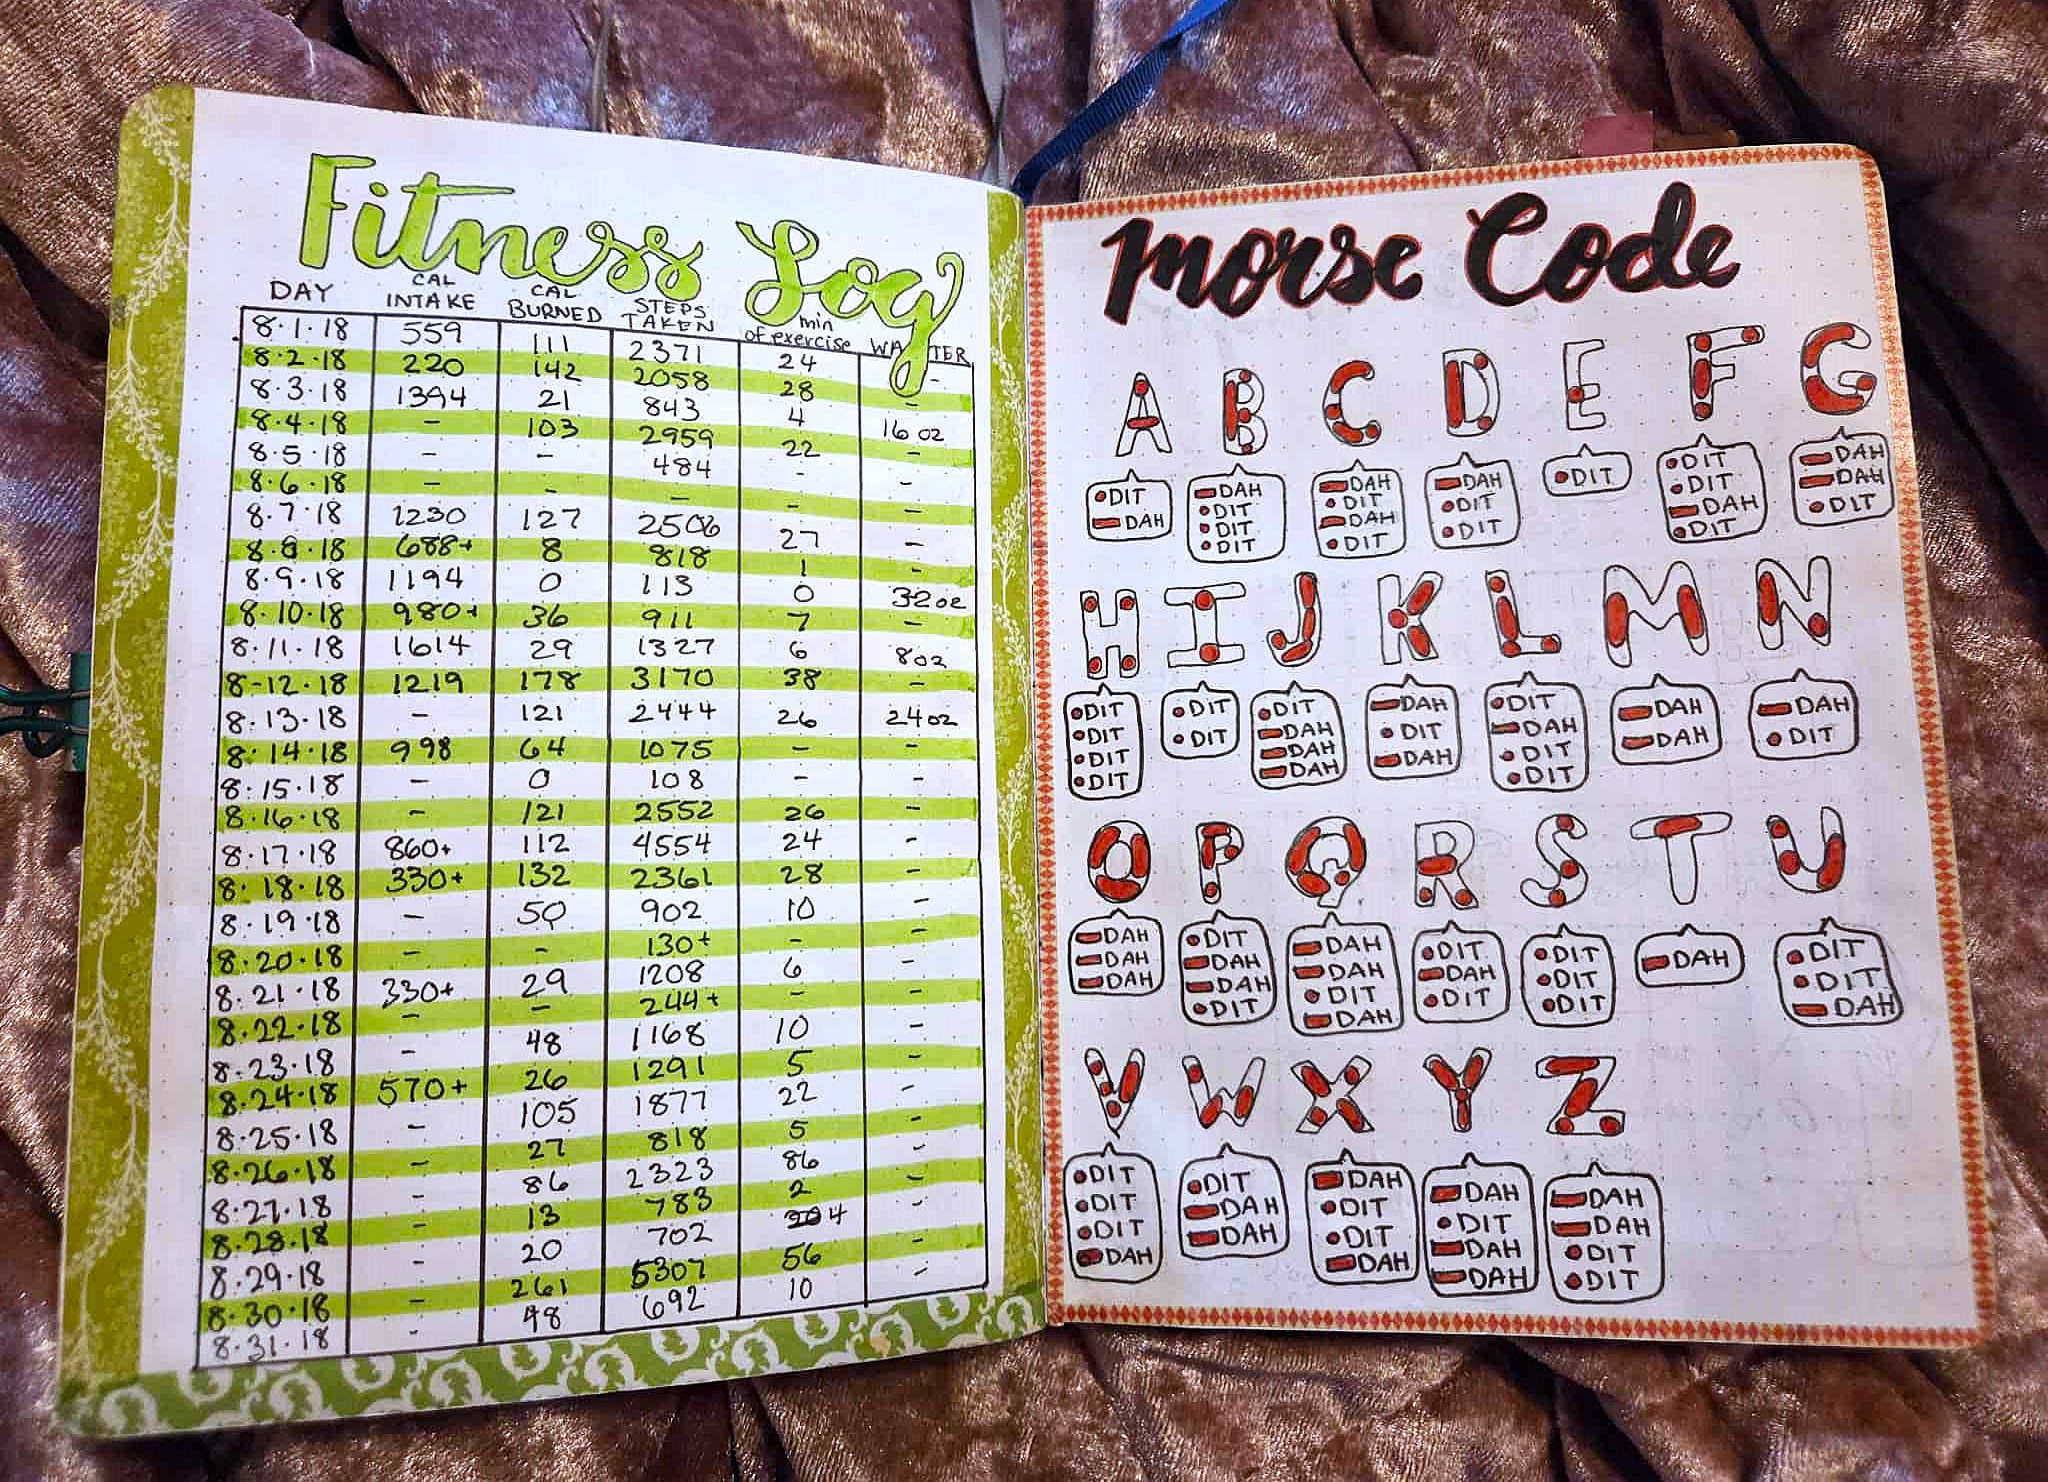 Fitness Log
DAY CAL INTAKE CAL BURNED STEPS TAKEN min of exercise WATER
8.1.18 559 111 2371 24 -
8.2.18 220 142 2058 28 -
8.3.18 1394 21 843 4 16 oz
8.4.18 - 103 2959 22 -
8.5.18 - - 484 - -
8.6.18 - - - - -
8.7.18 1230 127 2506 27 -
8.8.18 688+ 8 818 1 -
8.9.18 1194 0 113 0 32 oz
8.10.18 980+ 36 911 7 -
8.11.18 1614 29 1327 6 8 oz
8-12.18 1219 178 3170 38 -
8.13.18 - 121 2444 26 24 oz
8.14.18 998 64 1075 - -
8.15.18 - 0 108 - -
8.16.18 - 121 2552 26 -
8.17.18 860+ 112 4554 24 -
8.18.18 330+ 132 2361 28 -
8.19.18 - 50 902 10 -
8.20.18 - - 130+ - -
8.21.18 330+ 29 1208 6 -
8.22.18 - - 244+ - -
8.23.18 - 48 1168 10 -
8.24.18 570+ 26 1291 5 -
8.25.18 - 105 1877 22 -
8.26.18 - 27 818 5 -
8.27.18 - 86 2323 86 -
8.28.18 - 13 783 2 -
8.29.18 - 20 702 4 -
8.30.18 - 261 5307 56 -
8.31.18 - 48 692 10 -
Morse Code
A B C D E F G
DIT DAH DAH DAH DIT DIT DAH
DAH DIT DIT DIT DIT DAH
DIT DAH DIT DAH DIT
DIT DIT DIT
H I J K L M N
DIT DIT DIT DAH DIT DAH DAH
DIT DIT DAH DIT DAH DAH DIT
DIT DAH DAH DIT
DIT DAH DIT
O P Q R S T U
DAH DIT DAH DIT DIT DAH DIT
DAH DAH DAH DAH DIT DIT
DAH DAH DIT DIT DIT DAH
DIT DAH
V W X Y Z
DIT DIT DAH DAH DAH
DIT DAH DIT DIT DAH
DIT DAH DIT DAH DIT
DAH DAH DAH DIT